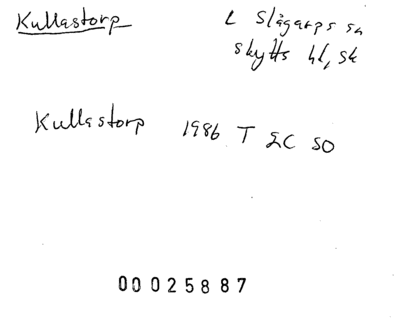 Kullastorp
L Slågarps sn
Skytts hd, Sk
Kullastorp 1986 T 2C SO
00025887